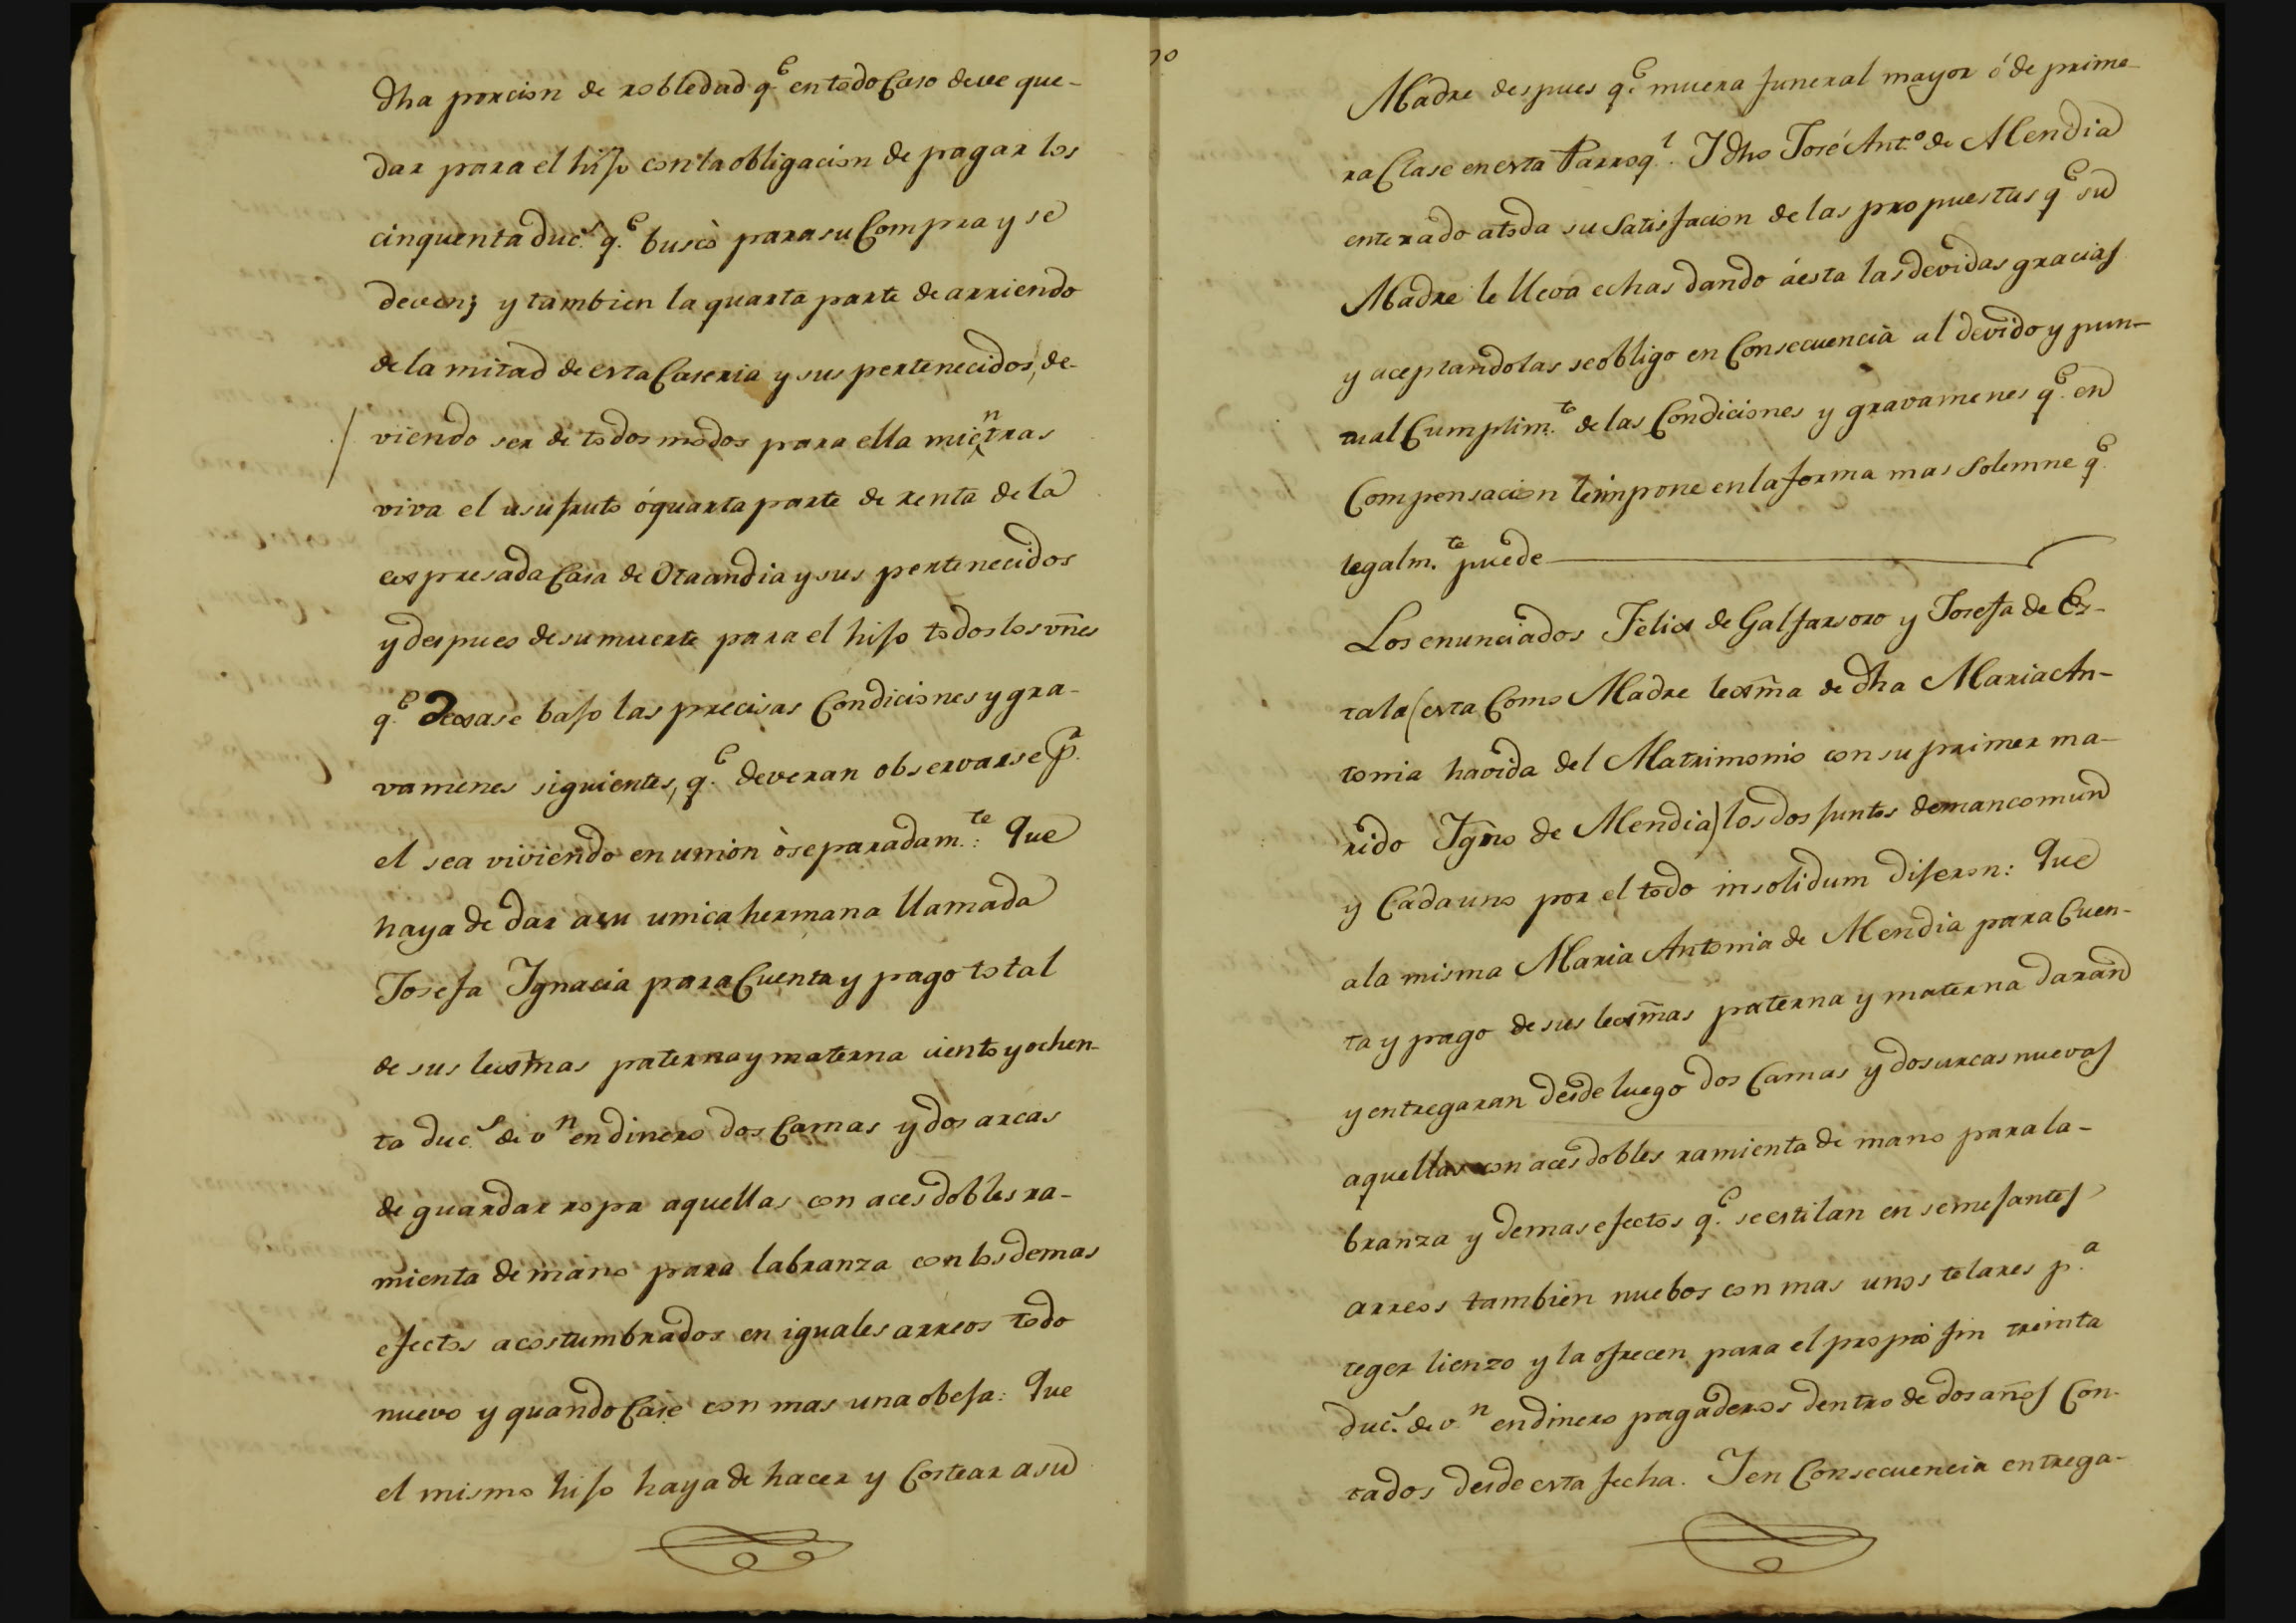 dha porcion de robledad q.e en todo Caso deve que-
dar para el hijo con la obligacion de pagar los
cinquenta duc.s q.e buscò para su Compra y se
deven; y tambien la quarta parte de arriendo
de la mitad de esta Caseria y sus pertenecidos, de-
viendo ser de todos modos para ella mientras
viva el usufruto ó quarta parte de renta de la
expresada Casa de Otaandia y sus pertenecidos
y despues de su muerte para el hijo todos los vñes
q.e dexase bajo las precisas Condiciones y gra-
vamenes siguientes, q.e deveran observarse p.r
el sea viviendo en union ò separadam.te: Que
haya de dar a su unica hermana llamada
Josefa Ignacia para Cuenta y pago total
de sus lexm̃as paterna y materna ciento y ochen-
ta duc.s de v.n en dinero dos Camas y dos arcas
de guardar ropa aquellas con aces dobles ra-
mienta de mano para labranza con los demas
efectos acostumbrados en iguales arreos todo
nuevo y quando Case con mas una obeja: Que
el mismo hijo haya de hacer y Costear a su
70
Madre despues q.e muera funeral mayor ó de prime-
ra Clase en esta Parroq.l. I dho José Ant.o de Mendia
enterado a toda su Satisfacion de las propuestas q.e su
Madre le lleva echas dando á esta las devidas gracias
y aceptandolas se obligo en Consecuencia al devido y pun-
tual Cumplim.to de las Condiciones y gravamenes q.e en
Compensacion le impone en la forma mas Solemne q.e
legalm.te puede
Los enunciados Felix de Galfarsoro y Josefa de Es-
tala (esta Como Madre lexm̃a de dha Maria An-
tonia havida del Matrimonio con su primer ma-
rido Ign̄o de Mendia) los dos juntos de mancomun
y Cada uno por el todo insolidum dijeron: Que
a la misma Maria Antonia de Mendia para Cuen-
ta y pago de sus lexm̃as paterna y materna daran
y entregaran desde luego dos Camas y dos arcas nuevas
aquellas con aces dobles ramienta de mano para la-
branza y demas efectos q.e se estilan en semejantes
arreos tambien nuebos con mas unos telares p.a
teger lienzo y la ofrecen para el propio fin treinta
duc.s de v.n en dinero pagaderos dentro de dos años Con-
tados desde esta fecha. I en Consecuencia entrega-